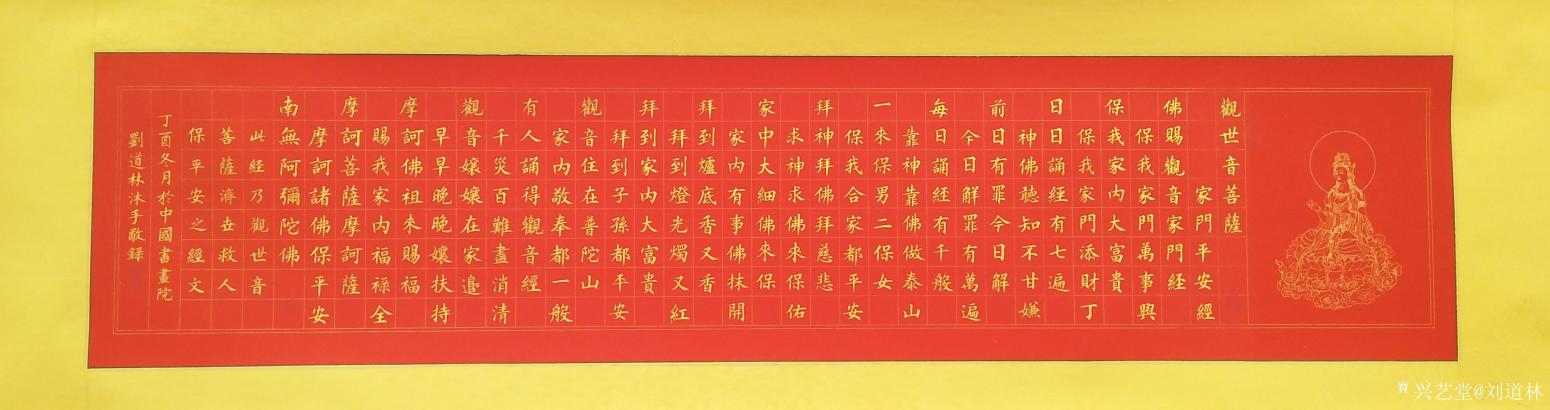 觀世音菩薩
家門平安經
佛賜觀音家門経
保我家門萬事興
保我家內大富貴
保我家門添財丁
日日誦經有七遍
神佛聽知不甘嫌
前日有罪今日解
今日解罪有萬遍
每日誦經有千般
靠神靠佛做泰山
一來保男二保女
保我合家都平安
拜神拜佛拜慈悲
求神求佛來保佑
家中大細佛來保
家內有事佛抹開
拜到爐底香又香
拜到燈光燭又紅
拜到家內大富貴
拜到子孫都平安
觀音住在普陀山
家內敬奉都一般
有人誦得觀音經
千災百難盡消清
觀音孃孃在家邊
早早晚晚孃扶持
摩訶佛祖來賜福
賜我家內福祿全
摩訶菩薩摩訶薩
摩訶諸佛保平安
南無阿彌陀佛
此經乃觀世音
菩薩濟世救人
保平安之經文
丁酉冬月於中國書畫院
劉道林沐手敬錄
兴艺堂@刘道林